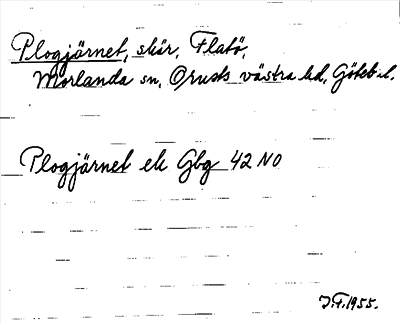 Plogjärnet, skär, Flatö,
Morlanda sn, Orusts västra hd, Göteb. l.
Plogjärnet ek Gbg 42 NO
J.F. 1955.